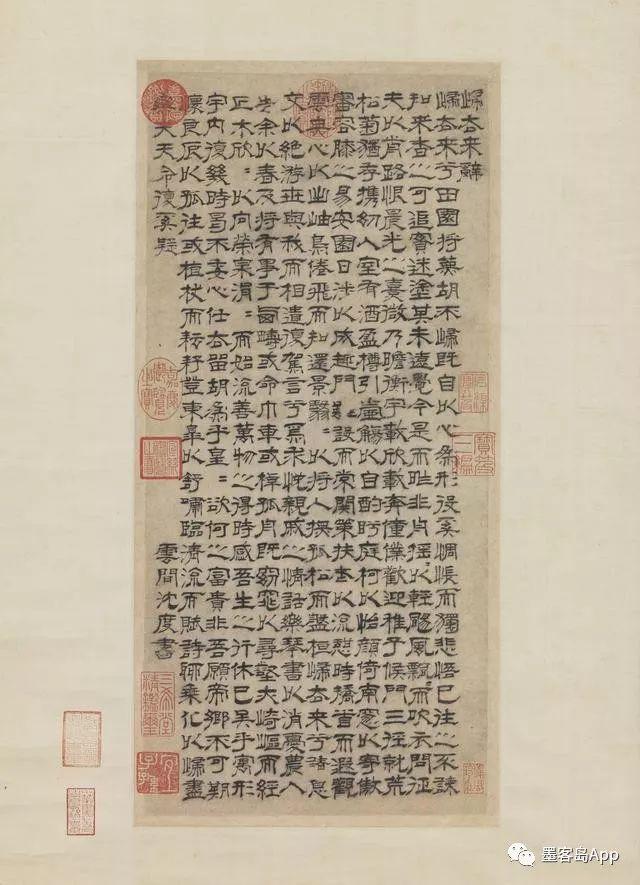 歸去來辭
歸去來兮田園將蕪胡不歸既自以心為形役奚惆悵而獨悲悟已往之不諫
知來者之可追實迷塗其未遠覺今是而昨非舟搖以輕颺風飄而吹衣問征
夫以前路恨晨光之熹微乃瞻衡宇載欣載奔僮僕歡迎稚子候門三徑就荒
松菊猶存攜幼入室有酒盈樽引壺觴以自酌眄庭柯以怡顏倚南窓以寄傲
審容膝之易安園日涉以成趣門雖設而常關策扶老以流憩時矯首而遐觀
雲無心以出岫鳥倦飛而知還景翳〻以將入撫孤松而盤桓歸去來兮請息
交以絕游世與我而相遺復駕言兮焉求悅親戚之情話樂琴書以消憂農人
告余以春及將有事于西疇或命巾車或棹孤舟既窈窕以尋壑亦崎嶇而經
丘木欣〻以向榮泉涓〻而始流善萬物之得時感吾生之行休已矣乎寓形
宇內復幾時曷不委心任去留胡為乎皇〻欲何之富貴非吾願帝鄉不可期
懷良辰以孤往或植杖而耘耔登東皋以舒嘯臨清流而賦詩聊乘化以歸盡
樂夫天命復奚疑
雲間沈度書
嘉慶御覽之寶
三希堂精鑑璽
宜子孫
寶笈三編
墨客岛App